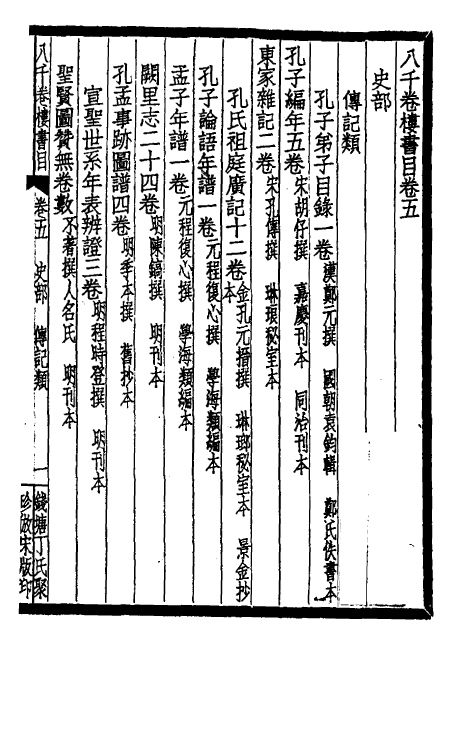 八千卷樓書目卷五
史部
傳記類
孔子弟子目錄一卷漢鄭元撰 國朝袁鈞輯 鄭氏佚書本
孔子編年五卷宋胡仔撰 嘉慶刊本 同治刊本
東家雜記二卷宋孔傳撰 琳琅秘室本
孔氏祖庭廣記十二卷金孔元措撰 琳瑯秘室本 景金抄本
孔子論語年譜一卷元程復心撰 學海類編本
孟子年譜一卷元程復心撰 學海類編本
闕里志二十四卷明陳鎬撰 明刊本
孔孟事跡圖譜四卷明季本撰 舊抄本
宣聖世系年表辨證三卷明程時登撰 明刊本
聖賢圖贊無卷數不著撰人名氏 明刊本
八千卷樓書目 卷五 史部 傳記類 一 錢塘丁氏聚珍倣宋版印